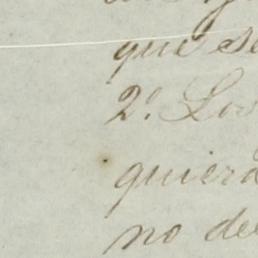 que se
2º. Los
quiera
no de